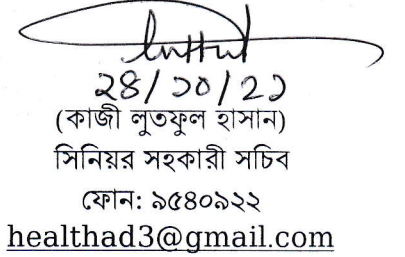 ২৪/১০/২১
(কাজী লুতফুল হাসান)
সিনিয়র সহকারী সচিব
ফোন: ৯৫৪০৯২২
healthad3@gmail.com